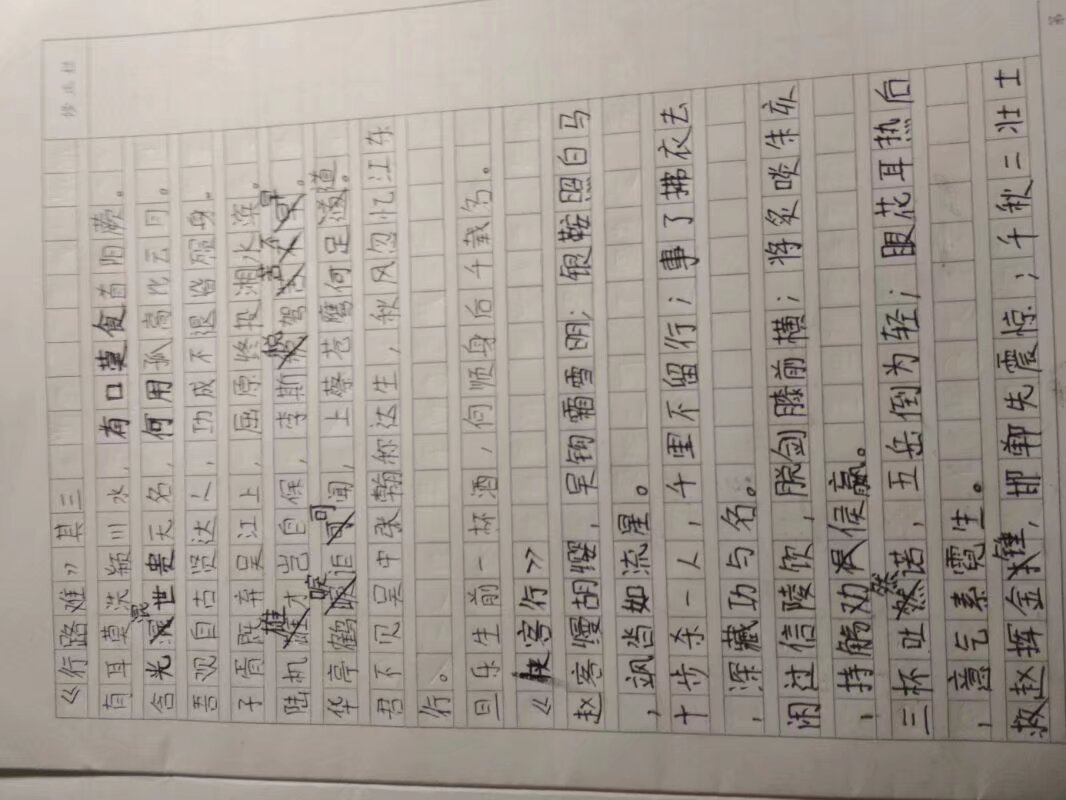 《行路难》其三
有耳莫洗颍川水,有口莫食首阳蕨。
含光混世贵无名,何用孤高比云月。
吾观自古贤达人,功成不退皆殒身。
子胥既弃吴江上,屈原终投湘水滨。
陆机雄才岂自保,李斯税驾苦不早。
华亭鹤唳讵可闻,上蔡苍鹰何足道。
君不见吴中张翰称达生,秋风忽忆江东
行。
且乐生前一杯酒,何须身后千载名。
《侠客行》
赵客慢胡缨,吴钩霜雪明;银鞍照白马
,飒沓如流星。
十步杀一人,千里不留行;事了拂衣去
,深藏功与名。
闲过信陵饮,脱剑膝前横;将炙啖朱亥
,持觞劝侯嬴。
三杯吐然诺,五岳倒为轻;眼花耳热后
,意气素霓生。
救赵挥金锤,邯郸先震惊;千秋二壮士